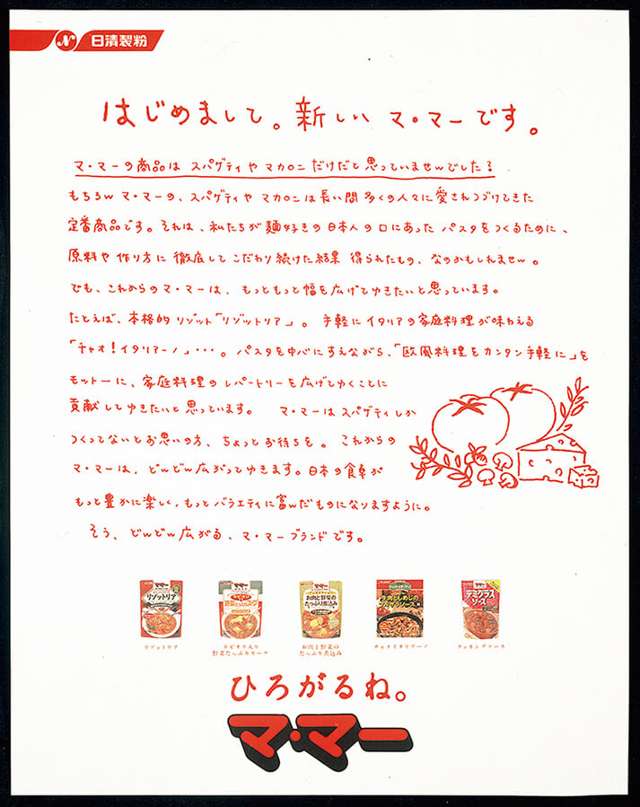 日清製粉
はじめまして。新しい マ・マーです。
マ・マーの商品は スパゲティや マカロニ だけだと 思っていませんでした?
もちろん マ・マーの、スパゲティや マカロニは 長い間 多くの人々に 愛されつづけてきた
定番商品です。それは、私たちが 麺好きの 日本人の 口にあった パスタをつくるために、
原料や 作り方に 徹底して こだわり続けた結果 得られたもの、なのかもしれません。
でも、これからの マ・マーは、もっともっと 幅を広げてゆきたいと 思っています。
たとえば、本格的 リゾット「リゾットリア」。 手軽に イタリアの 家庭料理が 味わえる
「チャオ!イタリアーノ」・・・。 パスタを 中心に すえながら、「欧風料理を カンタン 手軽に」を
モットーに、家庭料理の レパートリーを 広げてゆくことに
貢献してゆきたいと 思っています。 マ・マーは スパゲティしか
つくってないと お思いの方、ちょっと お待ちを。 これからの
マ・マーは、どんどん 広がってゆきます。日本の 食卓が
もっと豊かに 楽しく、もっと バラエティに 富んだものに なりますように。
そう、どんどん 広がる、マ・マー ブランドです。
マ・マー
リゾットリア
マ・マー
お肉と野菜の
たっぷり煮込み
デミグラス
ソース
リゾットリア
野菜たっぷりスープ
お肉と野菜の
たっぷり煮込み
ひろがるね。
マ・マー